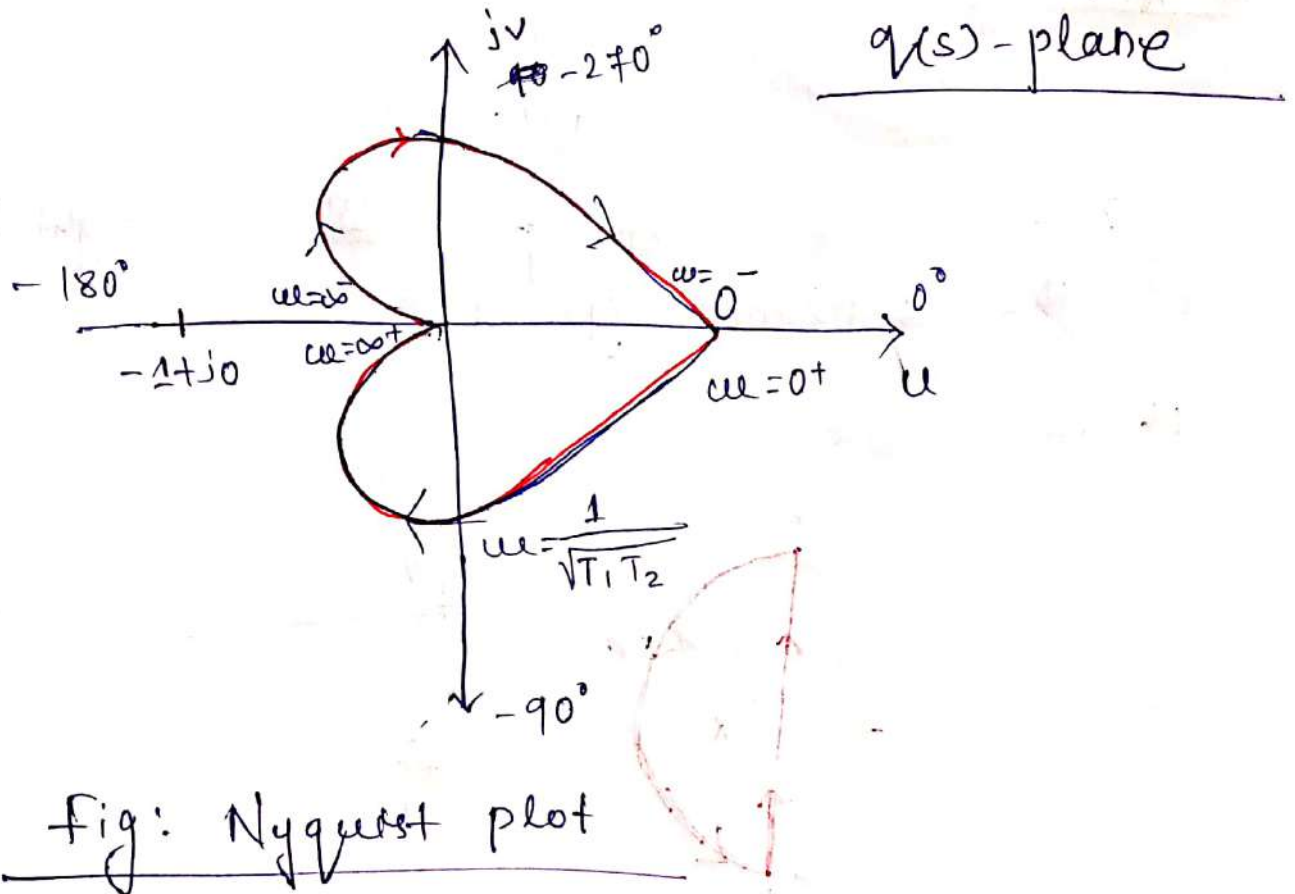 jv
-270°
q(s)-plane
-180°
ω=∞⁻
ω=0⁻
0°
-1+j0
ω=∞⁺
ω=0⁺
u
ω=1/√T₁T₂
-90°
fig: Nyquist plot